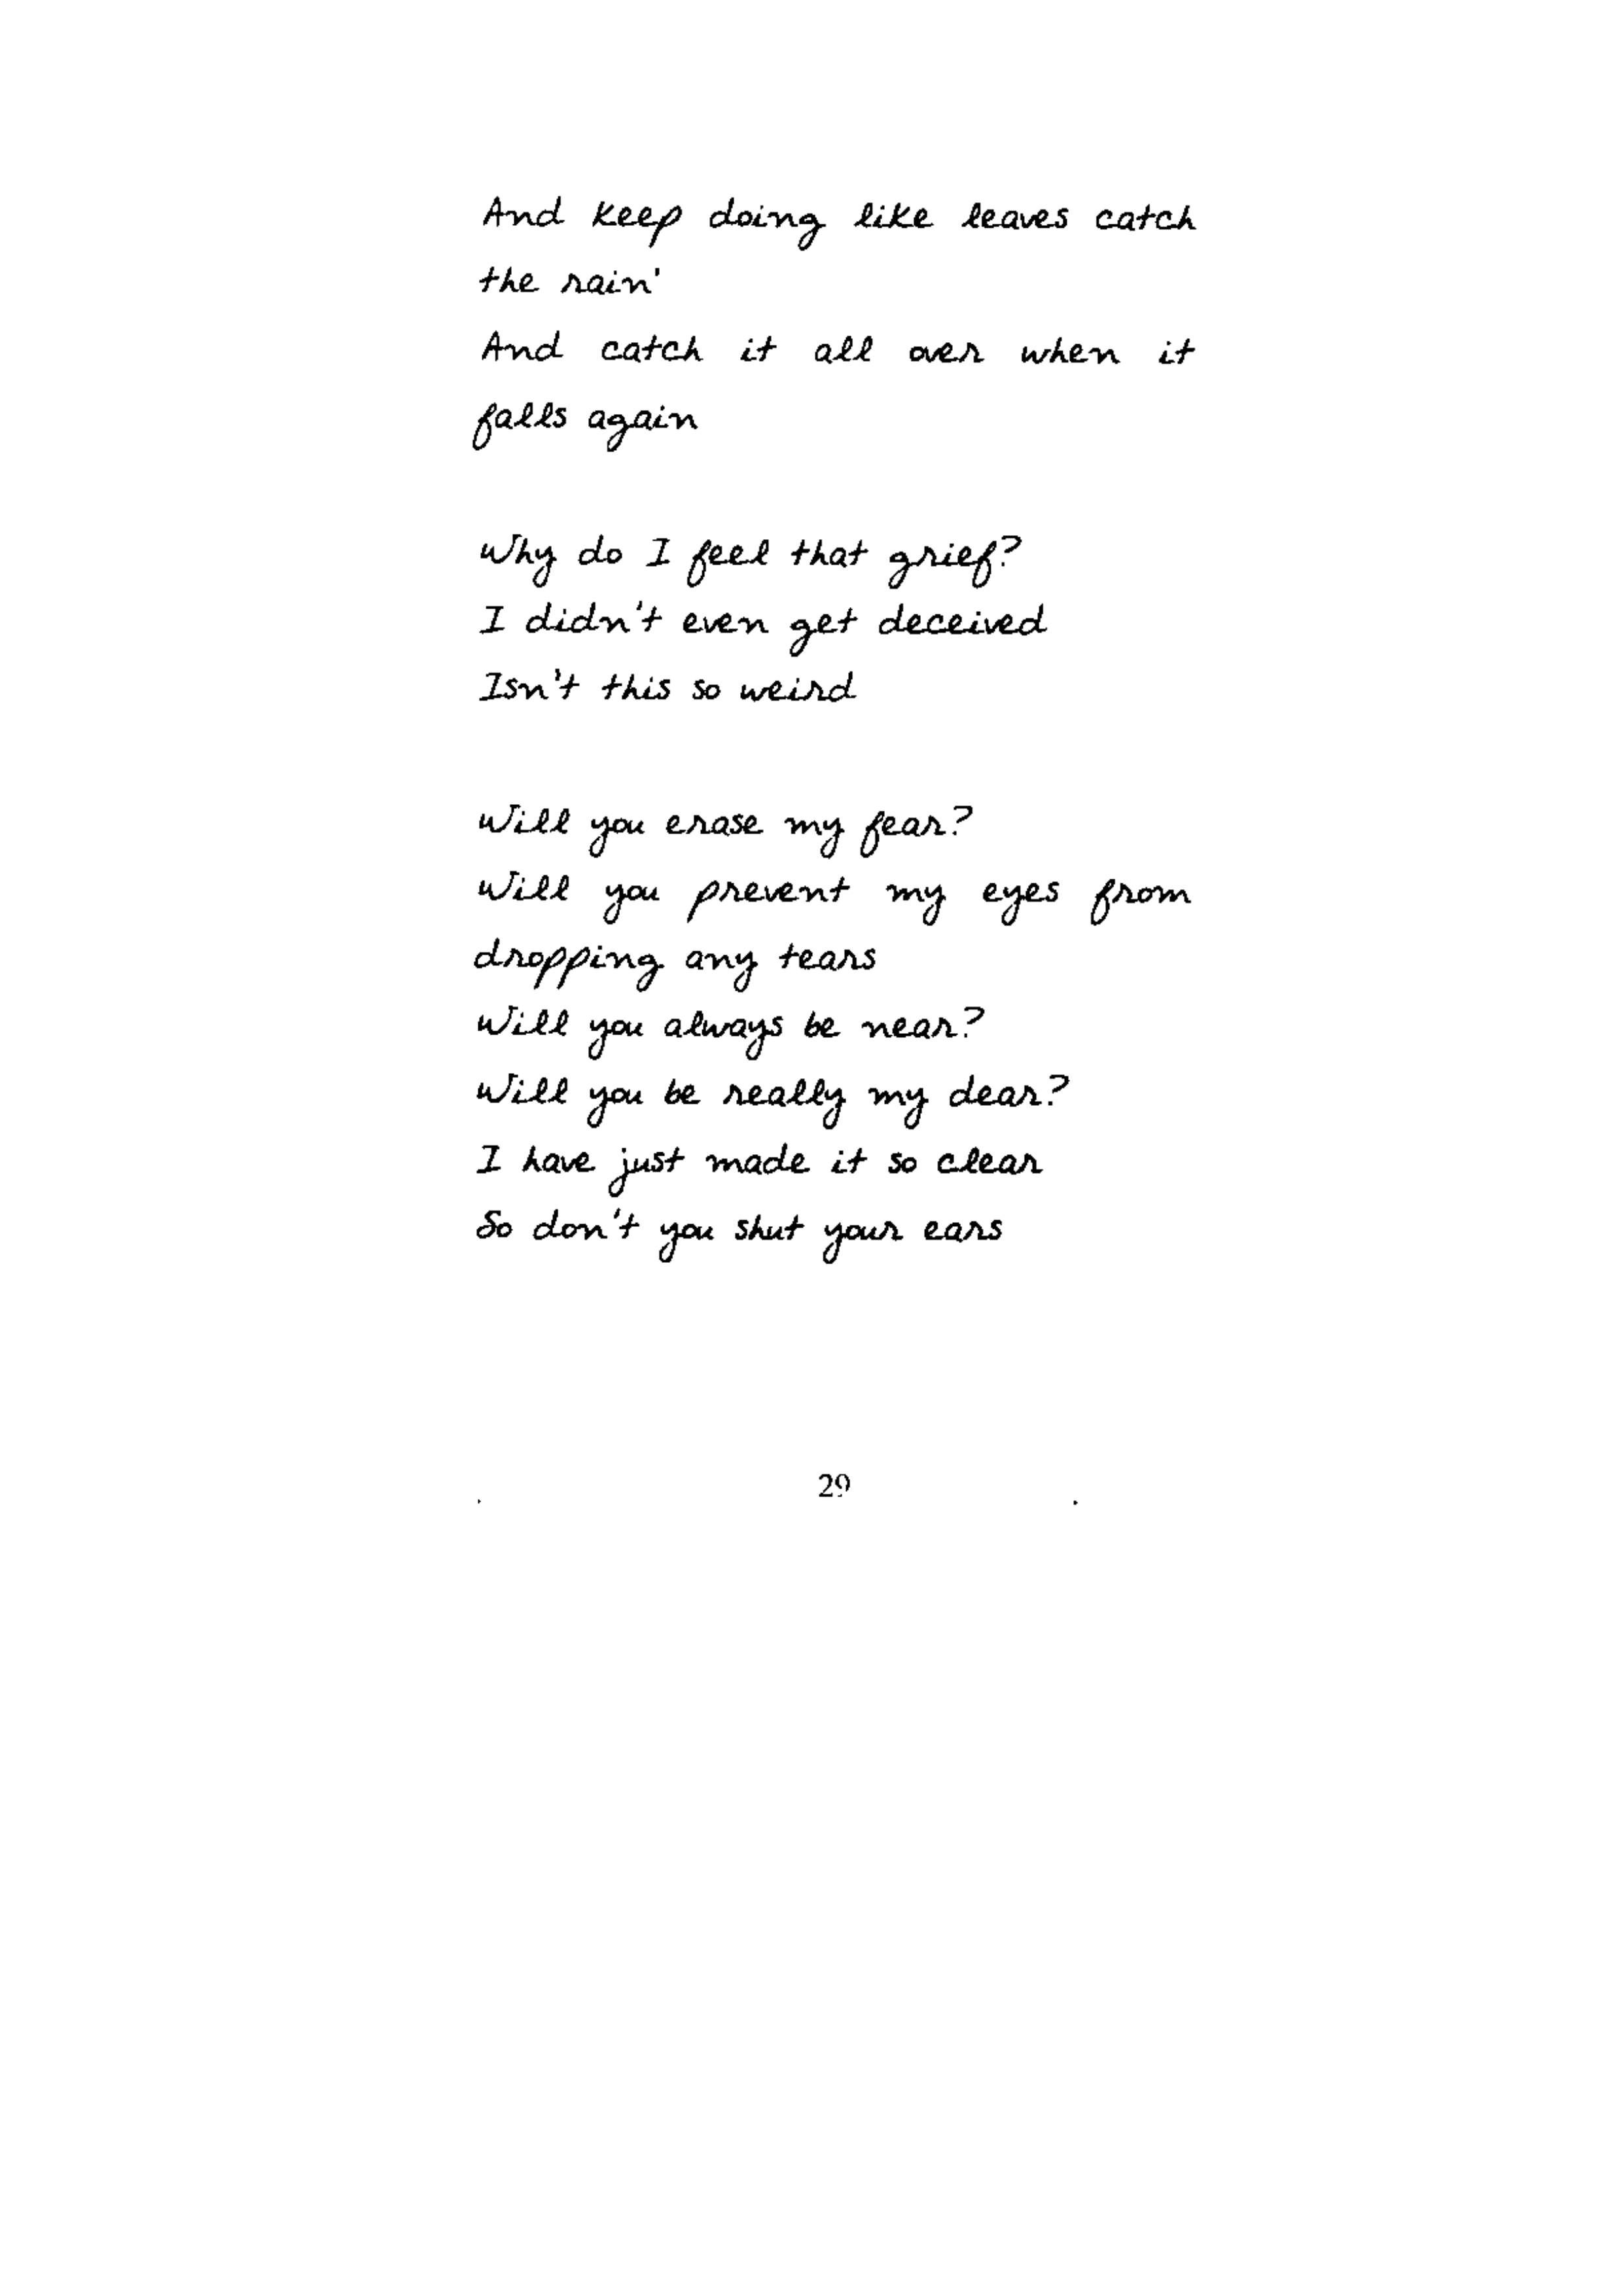 And keep doing like leaves catch
the rain'
And catch it all over when it
falls again
Why do I feel that grief?
I didn't even get deceived
Isn't this so weird
Will you erase my fear?
Will you prevent my eyes from
dropping any tears
Will you always be near?
Will you be really my dear?
I have just made it so clear
So don't you shut your ears
29